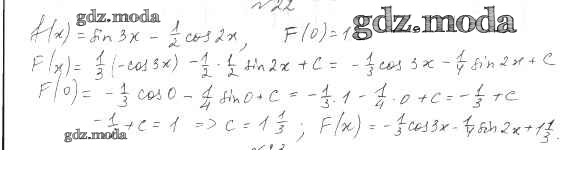 №22
gdz.moda
f(x) = sin 3x - 1/2 cos 2x, F(0) = 1
gdz.moda
F(x) = 1/3 (-cos 3x) - 1/2 · 1/2 sin 2x + C = -1/3 cos 3x - 1/4 sin 2x + C
F(0) = -1/3 cos 0 - 1/4 sin 0 + C = -1/3 · 1 - 1/4 · 0 + C = -1/3 + C
-1/3 + C = 1 => C = 1 1/3 ; F(x) = -1/3 cos 3x - 1/4 sin 2x + 1 1/3.
gdz.moda